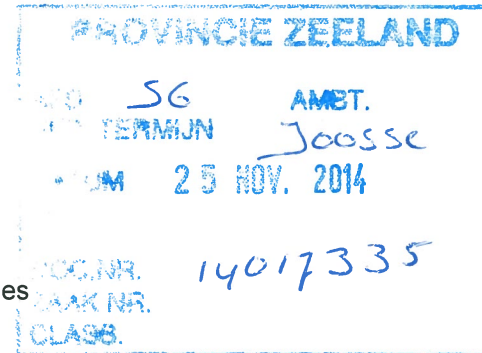 PROVINCIE ZEELAND
SG AMBT.
TERMIJN Joosse
25 NOV. 2014
DOC.NR. 14017335
es ZAAK NR.
CLASS.